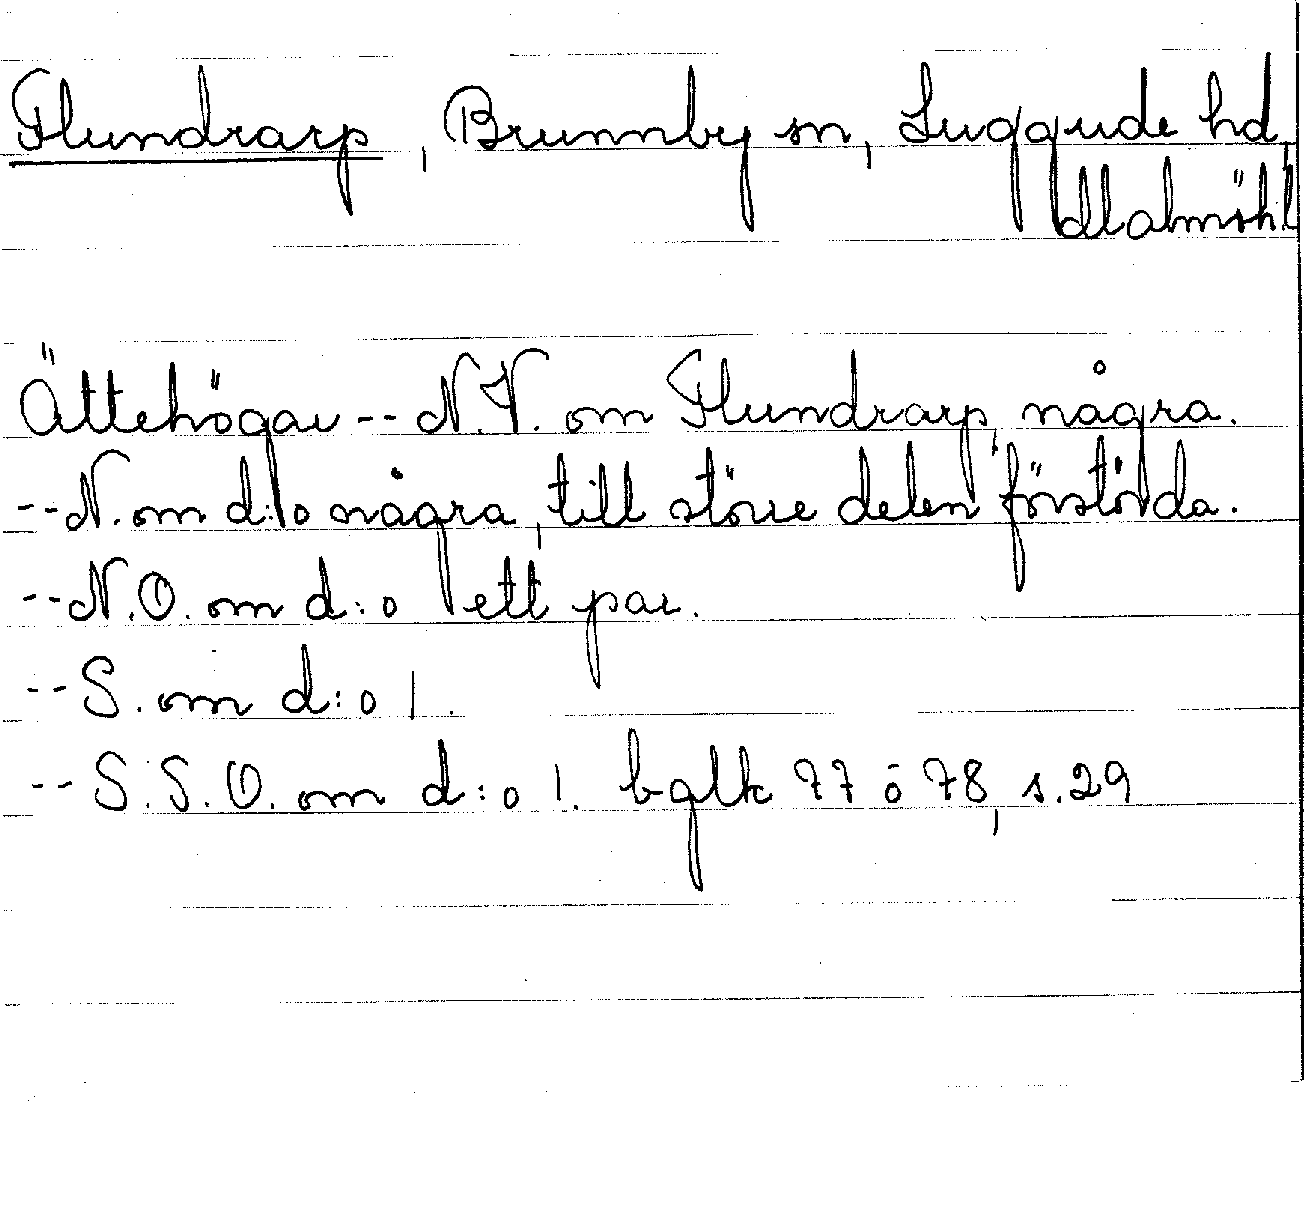 Flundrarp, Brunnby sn, Luggude hd,
Malmöhl
Ättehögar -- N.V. om Flundrarp, några.
-- N. om d:o några, till större delen förstörda.
-- N.O. om d:o ett par.
-- S. om d:o 1.
-- S.S.O. om d:o 1. bglk 77 o 78, s. 29